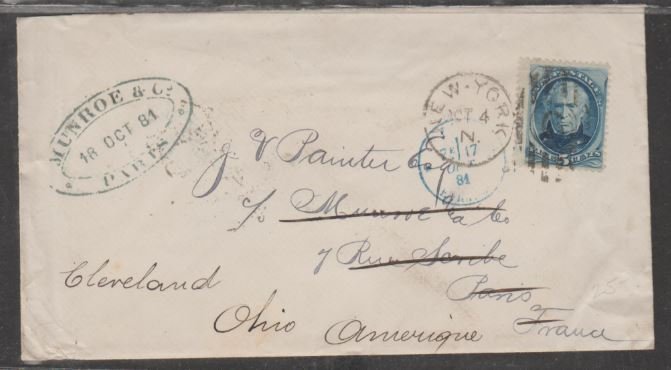 MUNROE & Co.
18 OCT 81
PARIS
NEW-YORK
OCT 4
17
81
J V Painter Esq
c/o Munroe & Co
7 Rue Scribe
Paris
France
Cleveland
Ohio Amerique